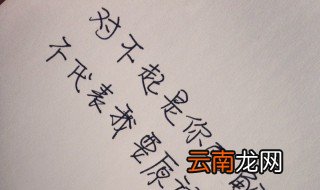 对不起是你
不代表我要原
云南龙网